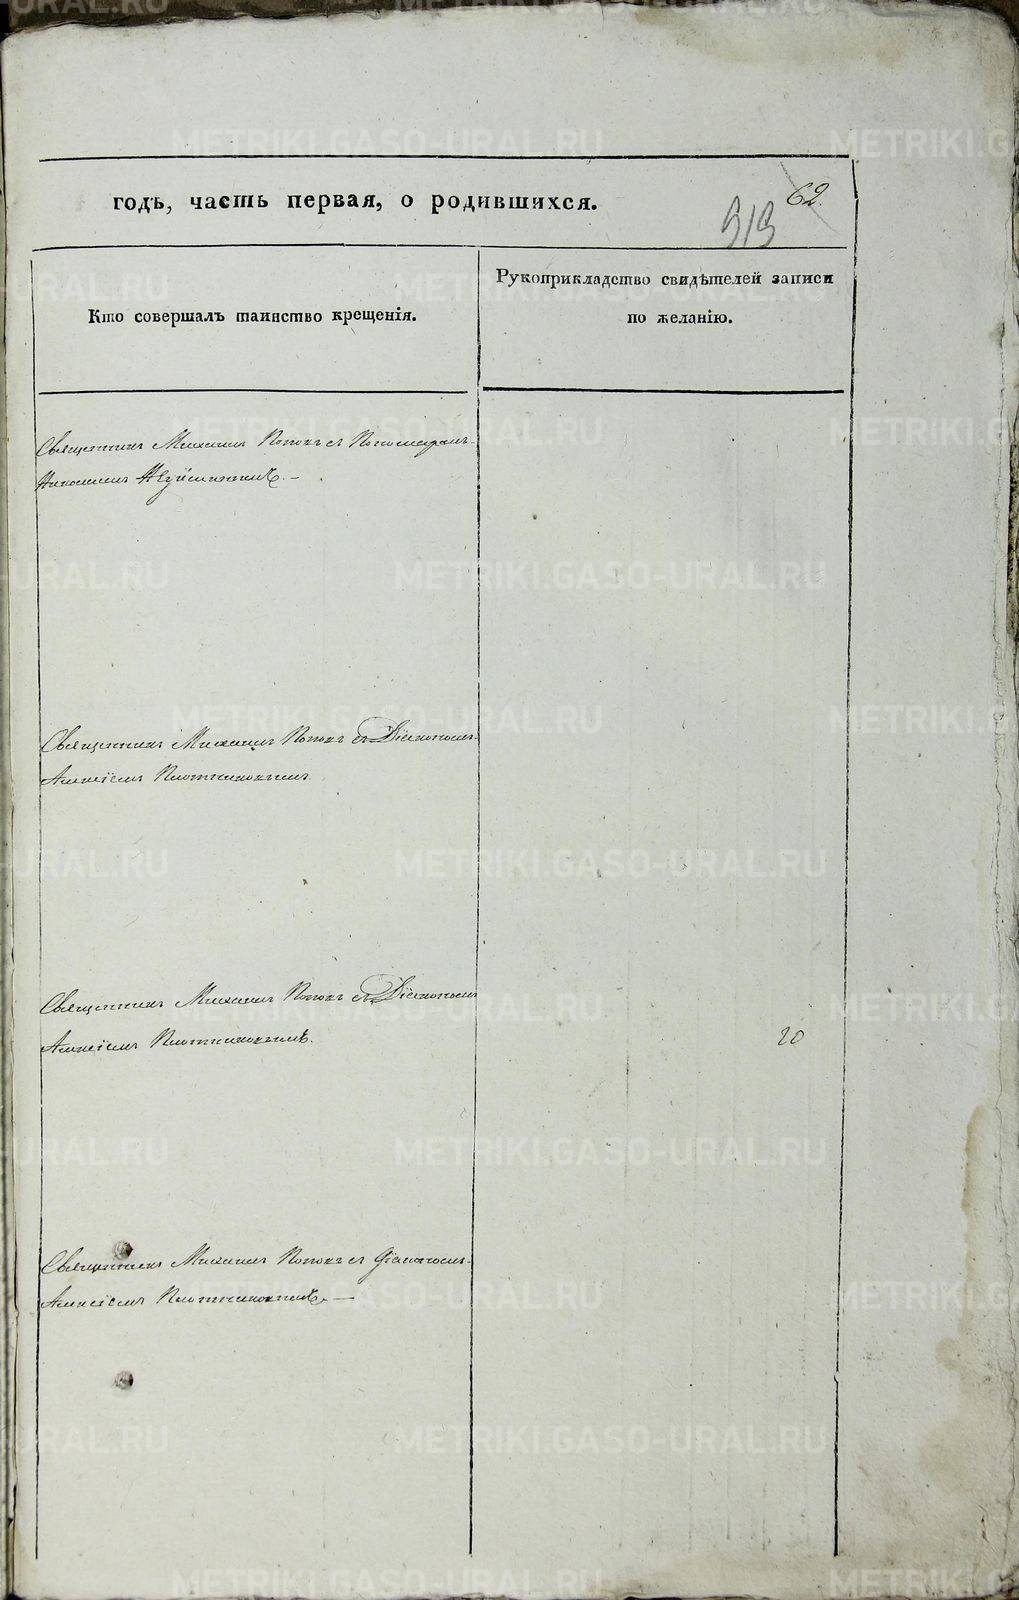 годъ, часть первая, о родившихся.
62.
313
Кто совершалъ таинство крещенія.
Рукоприкладство свидѣтелей записи
по желанію.
Священникъ Михаилъ Поповъ съ Пономаремъ
Николаемъ
Священникъ Михаилъ Поповъ съ Діакономъ
Алексіемъ Плотниковымъ.
Священникъ Михаилъ Поповъ съ Діакономъ
Алексіемъ Плотниковымъ.
20
Священникъ Михаилъ Поповъ съ Діакономъ
Алексіемъ Плотниковымъ. —
METRIKI.GASO-URAL.RU